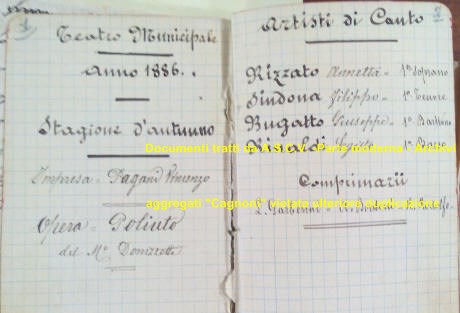 1
Teatro Municipale
Anno 1886.
Stagione d'autunno
Impresa = Pagani Vincenzo
Opera = Poliuto
del Mo Donizzetti
2
Artisti di Canto
Rizzato Annetta = 1o Soprano
Sindona Filippo = 1o Tenore
Bugatto Giuseppe = 1o Baritono
1o Basso
Comprimarii
Documenti tratti da A.S.C.V. -Parte moderna - Archivi
aggregati "Cagnoni" vietata ulteriore duplicazione